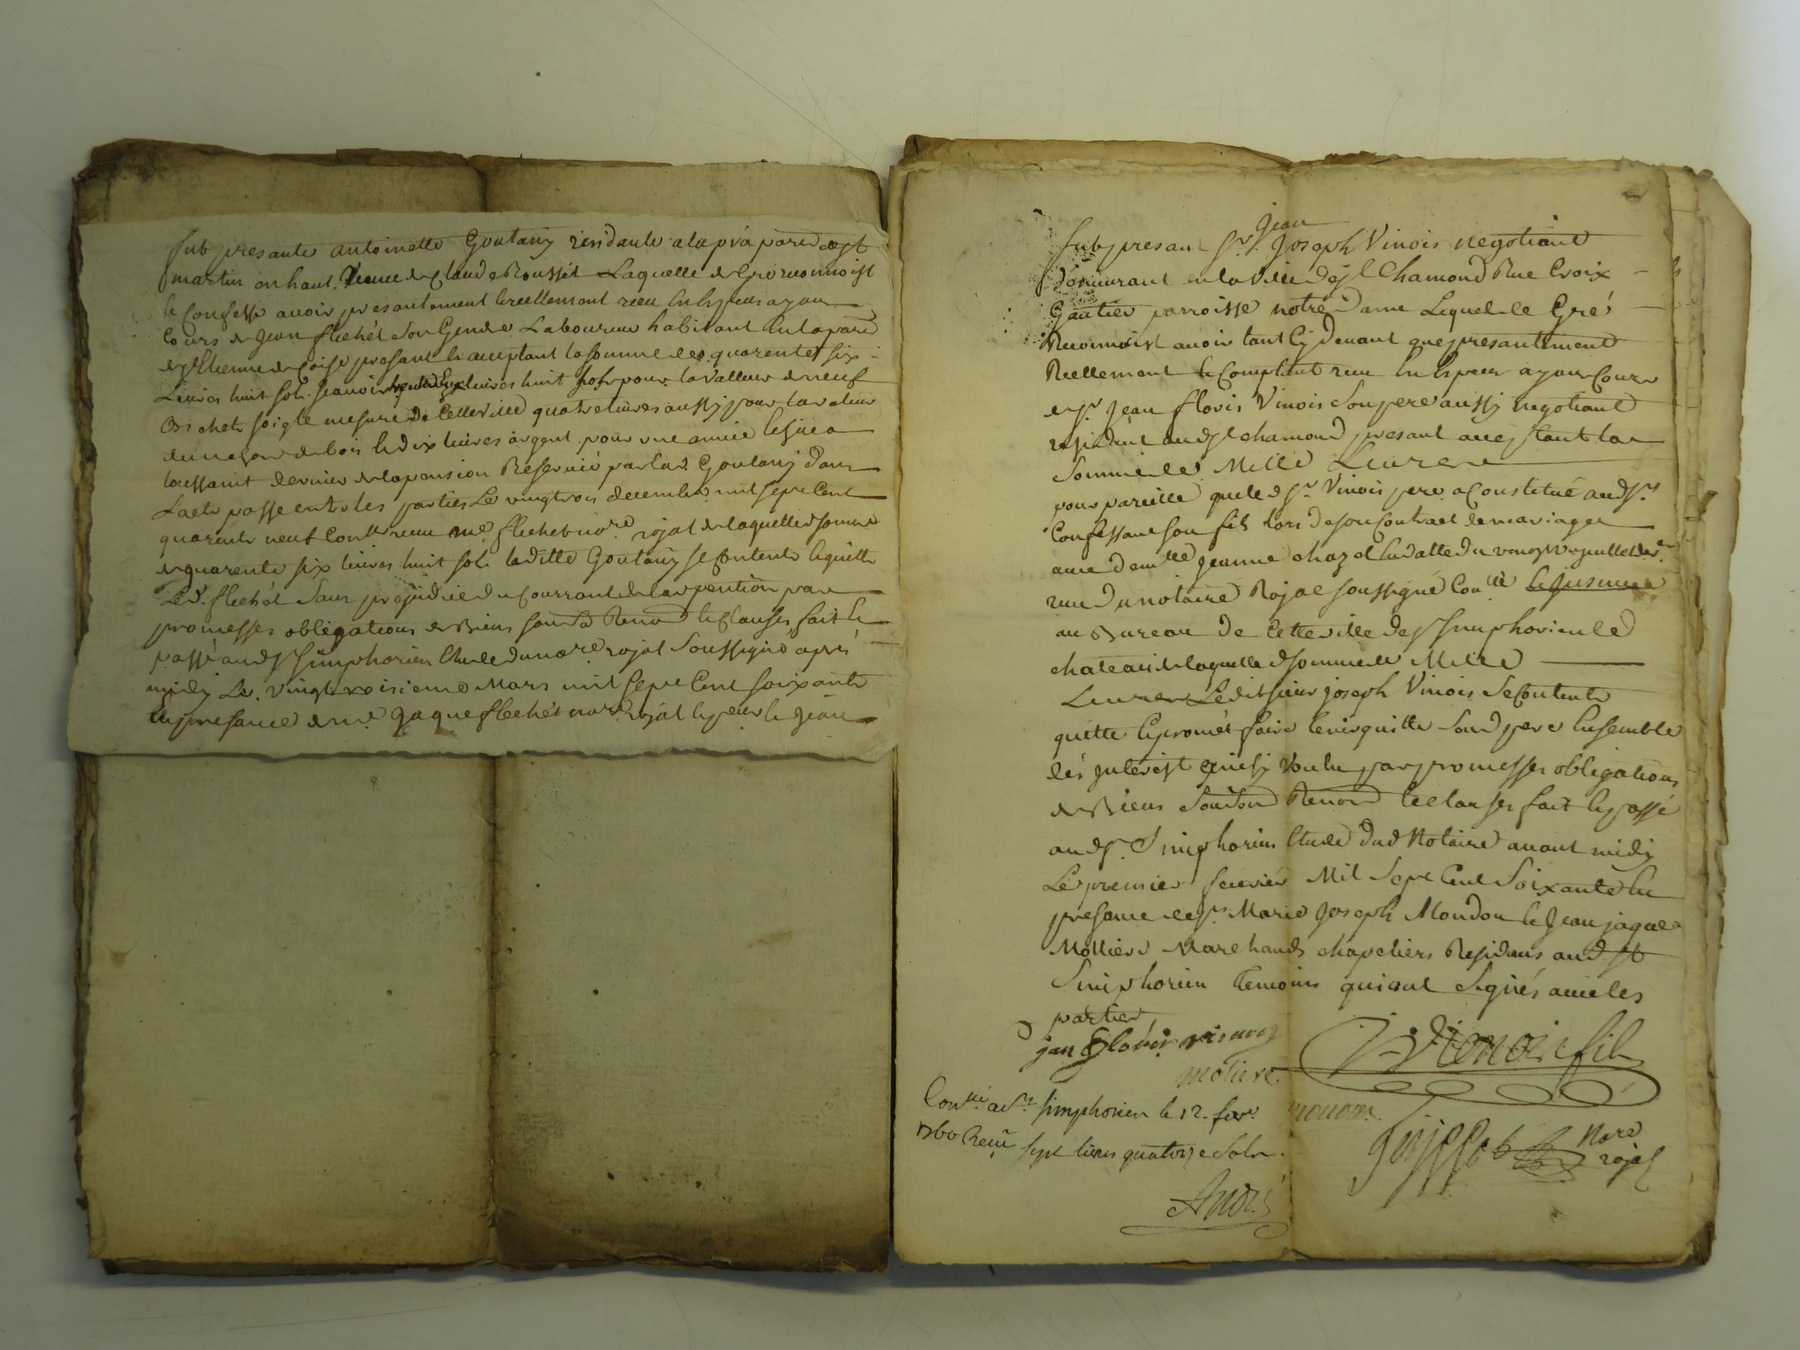 fut presante antoinette Goutany residante a la pra parr. de st
martin en haut, veuve de Claude Rousset Laquelle de gré reconnoist
et Confesse avoir presantement et reellement receu en especes ayant
Cours de Jean flechét son Gendre Laboureur habitant en la parr.
de st Etienne de Coise presant et acceptant la somme de quarente six
Livres huit sols. Scavoir livres huit sols pour la valleur de neuf
Bichets soigle mesure de Cette ville quatre livres aussy pour la valeur
de bois et dix livres argent pour une année echue a la
toussaint derniere de la pansion Reservée par lad. Goutany dans
L'acte passé entre les parties Le vingt trois decembre mil sept Cent
quarente neuf Con.lle receu me. flechet no.re royal de laquelle somme
de quarente six livres huit sols laditte Goutany se Contente et quitte
Led. flechét Sans prejudice du Courrant de la pention par
promesses obligations de Biens soum.d Renon.d et Clauses fait et
passé aud. st Simphorien Etude du no.re royal Soussigné après
midy Le vingt troisieme Mars mil sept Cent soixante
En presance de m.e Jaque flechét no.re royal et Jean
fut presant sr. Jean Joseph Vinois negotiant
demeurant en la Ville de st Chamond Rue Croix
Gautier parroisse notre Dame Lequel de Gré
Reconnoist avoir tant Cy devant que presantement
Reellement et Comptant receu en especes ayant Cours
de sr. Jean floris Vinois son pere aussy negotiant
residant aud. st chamond presant acceptant la
somme de Mille Livres
pour pareille que led sr. Vinois pere a Constitué aud. sr.
Confessant son fils lors de son Contract de mariage
avec dem.lle Jeanne chazel en datte du vingt un juillet der.r
receu du notaire Royal soussigné Con.llé
au Bureau de Cette ville de st Simphorien le
chateau de laquelle d somme de Mille
Livres Ledit sieur joseph Vinois se Contente
quitte et promet faire tenir quitte Sond pere Ensemble
des interest ainsy voulu par promesses obligations
de Biens Soum.on Renon.d et clauses fait et passé
aud. st. Simphorien Etude dud Notaire avant midy
Le premier fevrier Mil Sept Cent Soixante En
presance de sr. Marie Joseph Moudon et Jean jaque
Mollière Marchands chapeliers Residans aud st
Simphorien Temoins qui ont Signés avec les
parties
jan floris vinois
J. J. Vinois fils
moliere
moudon
Con.lle a st. simphorien le 12. fevr.
1760 Receu sept livres quatorze Sols.
no.re
royal
André